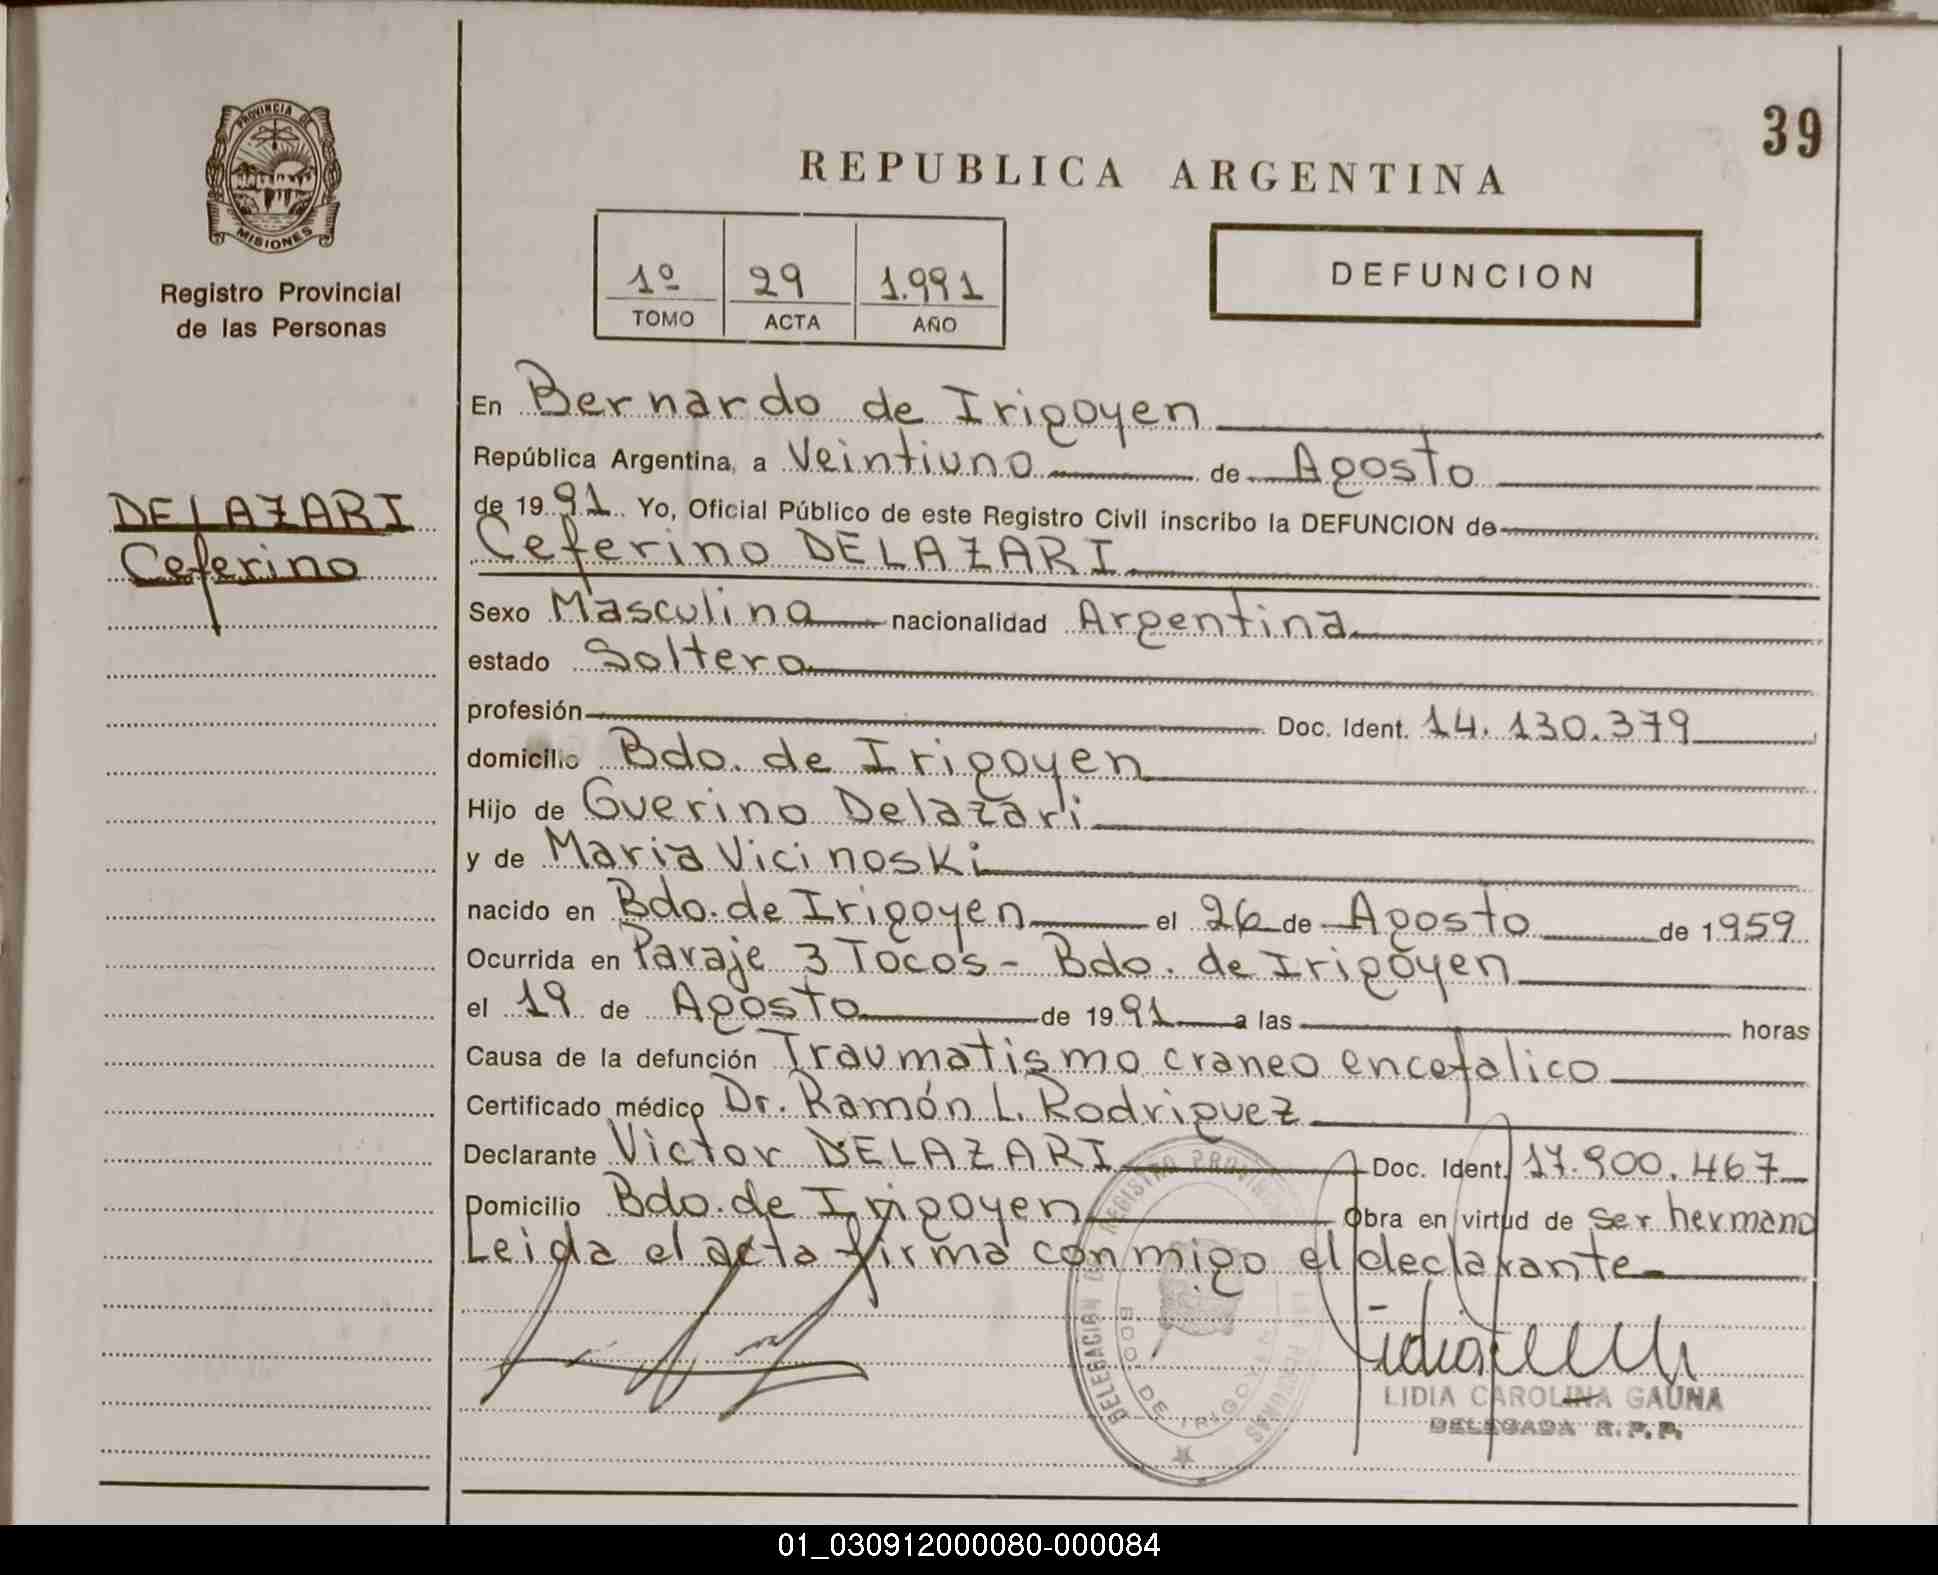 39
PROVINCIA DE
MISIONES
Registro Provincial
de las Personas
REPUBLICA ARGENTINA
1º 29 1.991
TOMO ACTA AÑO
DEFUNCION
DELAZARI
Ceferino
En Bernardo de Irigoyen
República Argentina, a Veintiuno de Agosto
de 1991 Yo, Oficial Público de este Registro Civil inscribo la DEFUNCION de
Ceferino DELAZARI
Sexo Masculino nacionalidad Argentina
estado Soltero
profesión Doc. Ident. 14.130.379
domicilio Bdo. de Irigoyen
Hijo de Guerino Delazari
y de Maria Vicinoski
nacido en Bdo. de Irigoyen el 26 de Agosto de 1959
Ocurrida en Paraje 3 Tocos - Bdo. de Irigoyen
el 19 de Agosto de 1991 a las horas
Causa de la defunción Traumatismo craneo encefalico
Certificado médico Dr. Ramón L. Rodriguez
Declarante Victor DELAZARI Doc. Ident. 17.900.467
Domicilio Bdo. de Irigoyen Obra en virtud de ser hermano
Leida el acta firma conmigo el declarante
DELEGACION DEL REGISTRO PROVINCIAL DE LAS PERSONAS
BDO. DE IRIGOYEN
LIDIA CAROLINA GAUNA
DELEGADA R.P.P.
01_030912000080-000084